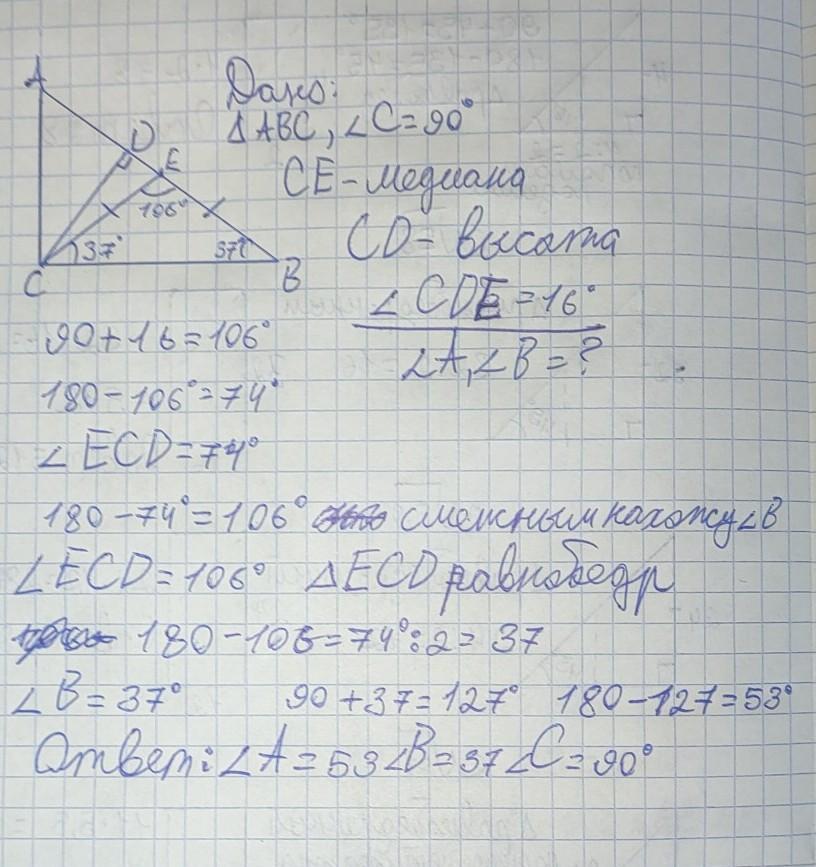 A
D
E
106°
37°
37°
C
B
Дано:
△ABC, ∠C=90°
CE-медиана
CD-высота
∠CDE=16°
∠A,∠B=?
90+16=106°
180-106°=74°
∠ECD=74°
180-74°=106° смежным нахожу ∠B
∠ECD=106° △ECD равнобедр
180-106=74°:2=37
∠B=37° 90+37=127° 180-127=53°
Ответ: ∠A=53 ∠B=37 ∠C=90°